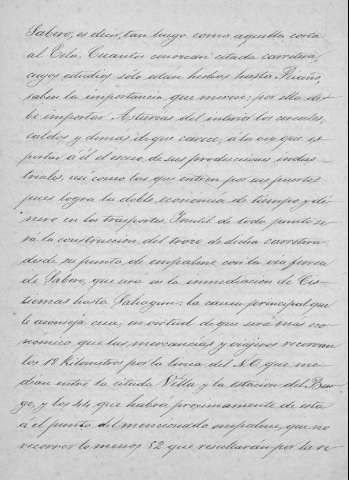 Sabero; es decir, tan luego como aquella corta
al Esla. Cuantos conozcan citada carretera,
cuyos estudios solo estan hechos hasta Riaño,
saben la importancia que merece; por ella de-
be importar Asturias del interior los cereales,
caldos y demás de que carece; á la vez que es-
portar á él el esceso de sus producciones indus-
triales, asi como los que entren por sus puertos
pues logra la doble economia de tiempo y di-
nero en los trasportes. Inutil de todo punto se-
rá la construccion del trozo de dicha carretera
desde su punto de empalme con la via ferrea
de Sabero, que sera en la inmediacion de Cis-
tierna hasta Sahagun: la causa principal que
le aconseja cesa, en virtud de que será mas eco-
nomico que las mercancias y viajeros recorran
los 18 kilometros por la linea del N.O. que me-
dian entre la citada Villa y la estacion del Bur-
go, y los 44 que habrá proximamente de esta
á el punto del mencionado empalme, que no
recorrer lo menos 52 que resultarán por la re-